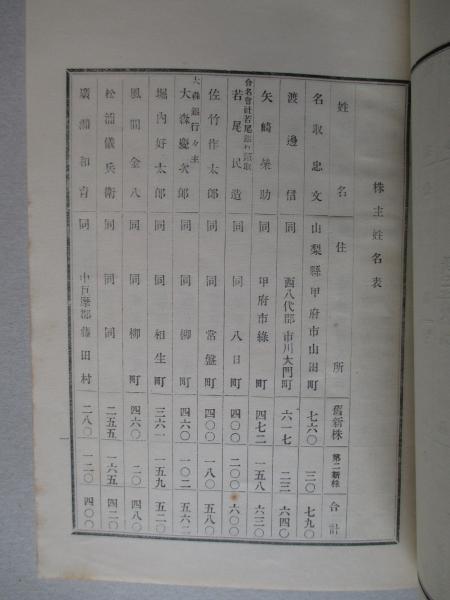 株主姓名表
姓名 住所 舊新株 第二新株 合計
名取忠文 山梨縣甲府市山田町 七六〇 三〇 七九〇
渡邊信 同 西八代郡市川大門町 六一七 二三 六四〇
矢崎榮助 同 甲府市綠町 四七二 一五八 六三〇
合名會社若尾銀行頭取
若尾民造 同 同 八日町 四〇〇 二〇〇 六〇〇
佐竹作太郎 同 同 常盤町 四〇〇 一八〇 五八〇
大森銀行々主
大森慶次郎 同 同 柳町 四六〇 一〇二 五六二
堀內好太郎 同 同 相生町 三六一 一五九 五二〇
風間金八 同 同 柳町 四六〇 二〇 四八〇
松浦儀兵衞 同 同 同 二五五 一六五 四二〇
廣瀨和育 同 中巨摩郡藤田村 二八〇 一二〇 四〇〇